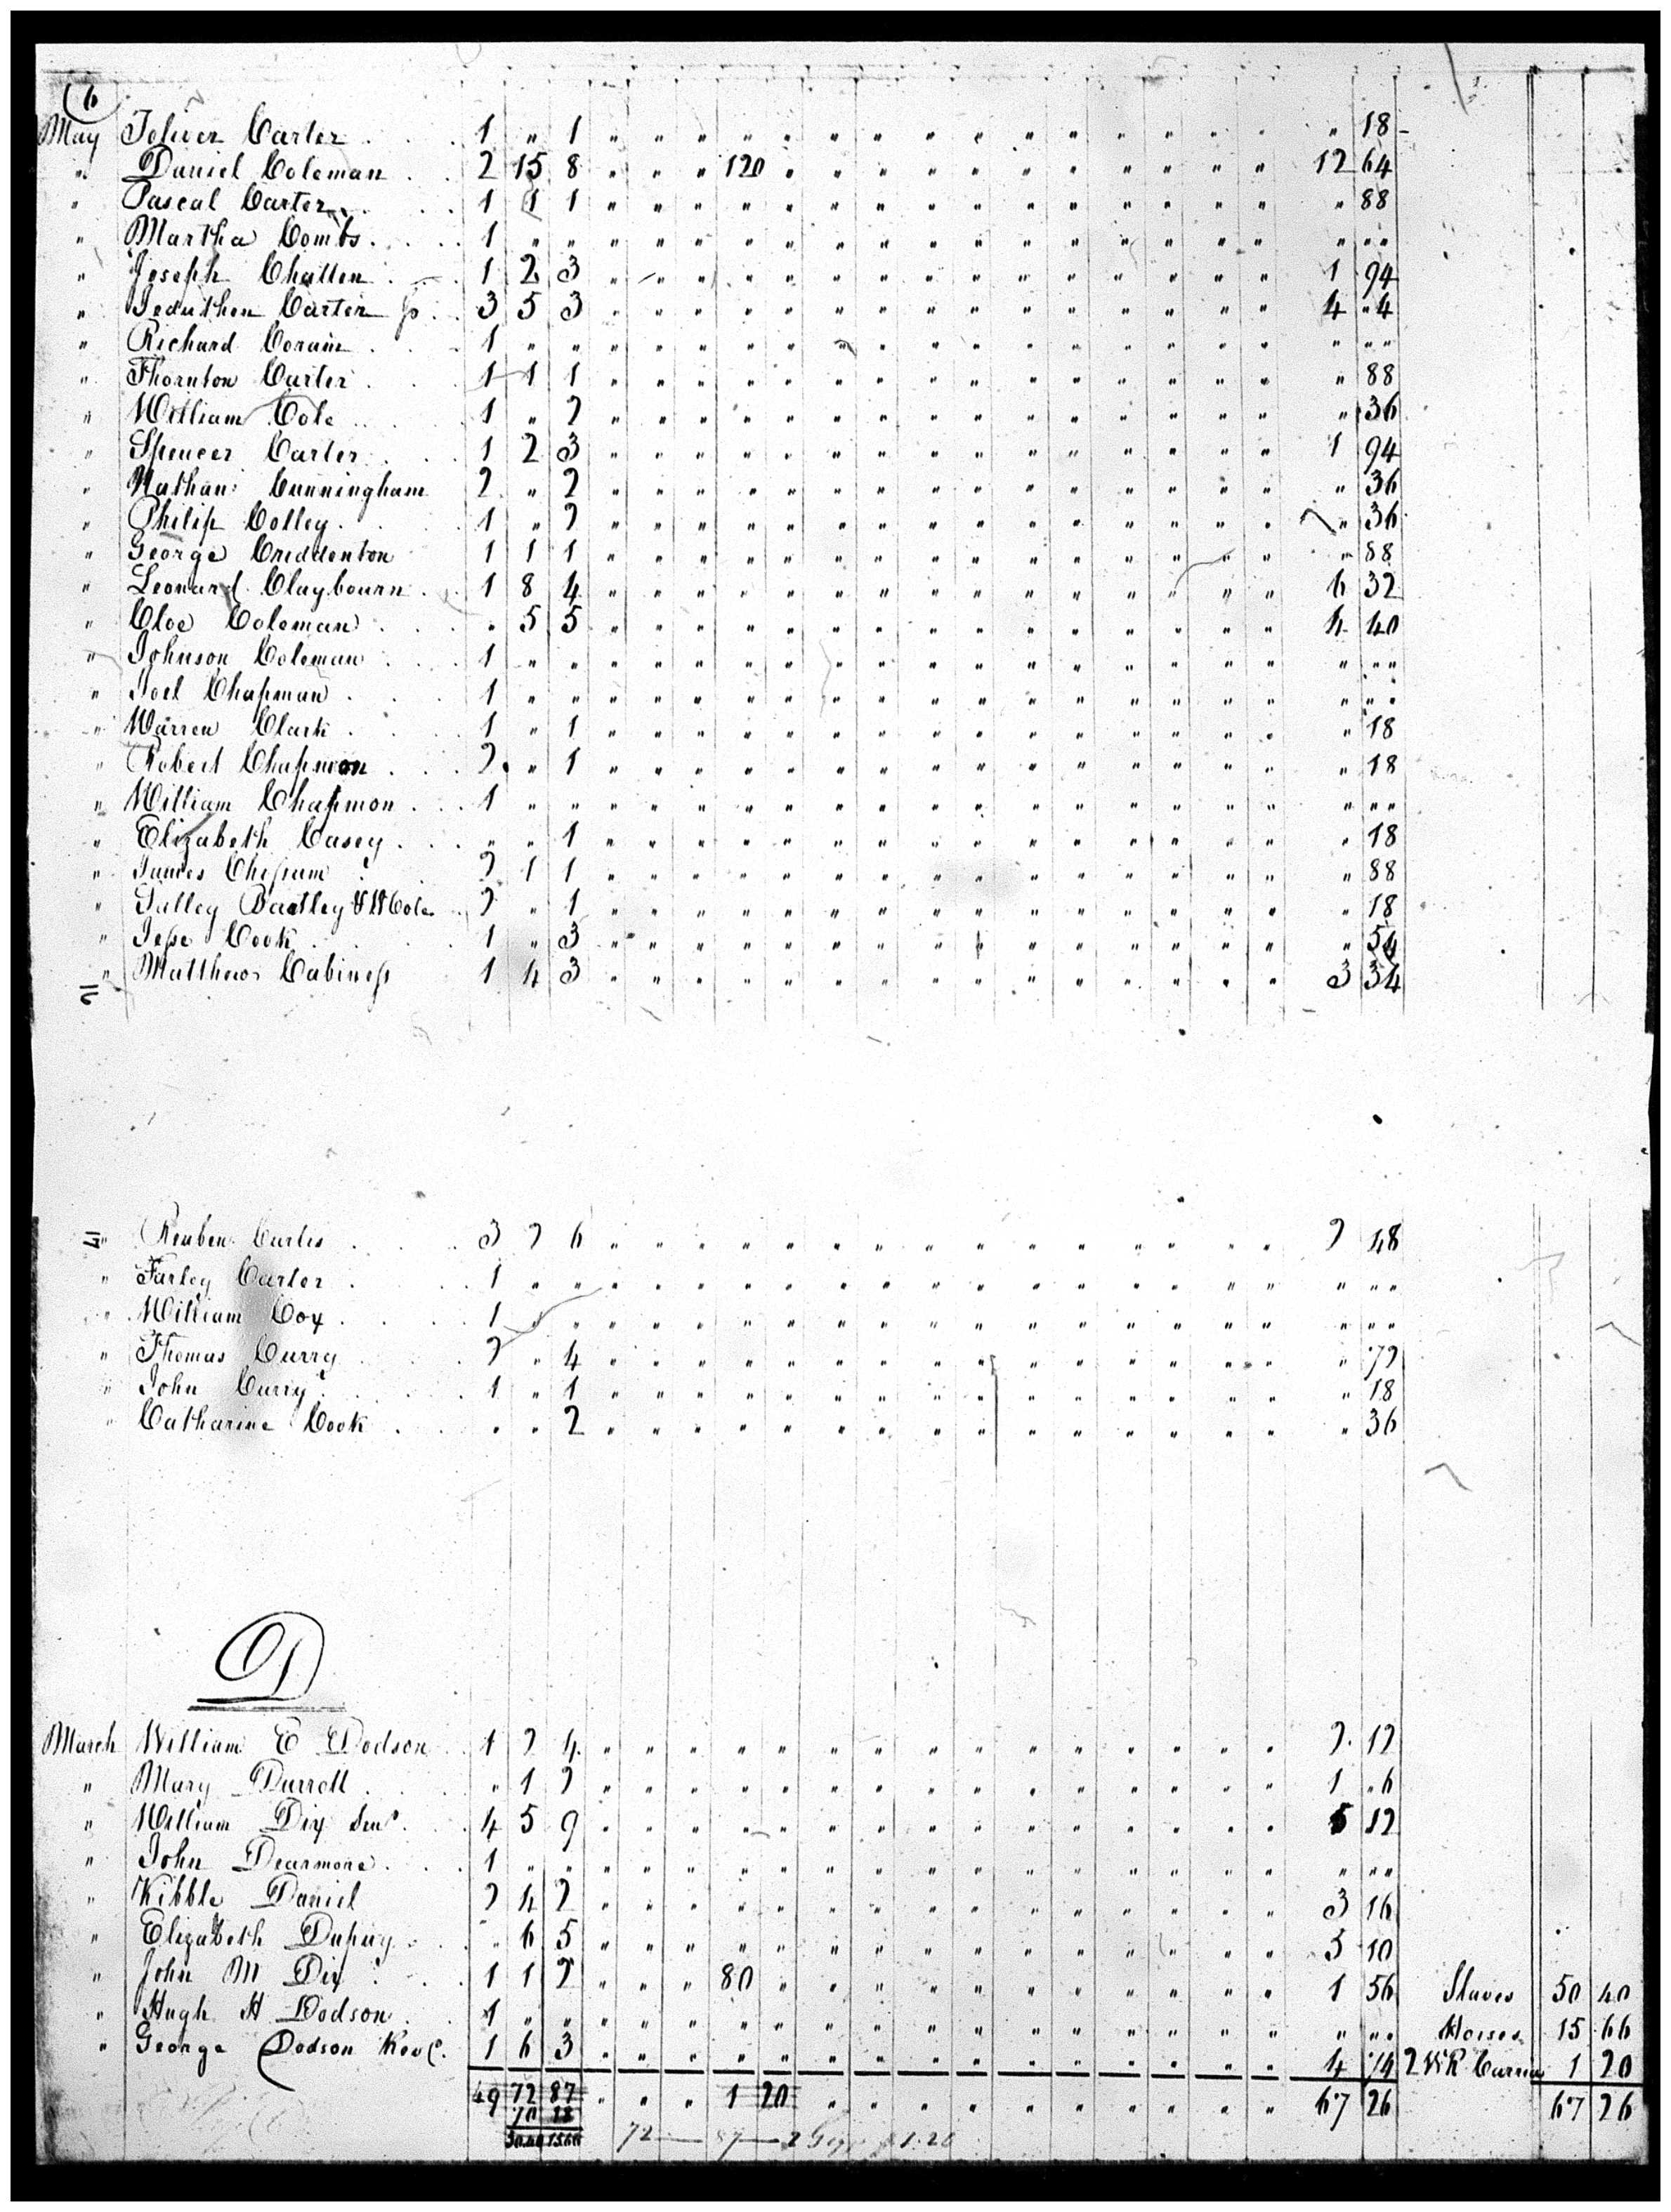 6
May Toliver Carter . . . 1 " 1 " " " " " " " " " " " " " " " " 18
" Daniel Coleman . . 2 15 8 " " " 120 " " " " " " " " " " " 12 64
" Pascal Carter . . . 1 1 1 " " " " " " " " " " " " " " " " 88
" Martha Combs . . . . 1 " " " " " " " " " " " " " " " " " " " "
" Joseph Challen . . . 1 2 3 " " " " " " " " " " " " " " " 1 94
" Jeduthen Carter . . 3 5 3 " " " " " " " " " " " " " " " 4 " 4
" Richard Corain . . . 1 " " " " " " " " " " " " " " " " " " " "
" Thornton Carter . . . 1 1 1 " " " " " " " " " " " " " " " " 88
" William Cole . . . 1 " 2 " " " " " " " " " " " " " " " " 36
" Spencer Carter . . . 1 2 3 " " " " " " " " " " " " " " " 1 94
" Nathan: Cunningham 2 " 2 " " " " " " " " " " " " " " " " 36
" Philip Colley . . . 1 " 2 " " " " " " " " " " " " " " " " 36
" George Criddenton 1 1 1 " " " " " " " " " " " " " " " " 88
" Leonard Claybourn . . 1 8 4 " " " " " " " " " " " " " " " 6 32
" Cloe Coleman . . . . " 5 5 " " " " " " " " " " " " " " " 4 40
" Johnson Coleman . . . 1 " " " " " " " " " " " " " " " " " " " "
" Joel Chapman . . . 1 " " " " " " " " " " " " " " " " " " " "
" Warren Clark . . . 1 " 1 " " " " " " " " " " " " " " " " 18
" Robert Chapmon . . . 2 " 1 " " " " " " " " " " " " " " " " 18
" William Chapmon . . . 1 " " " " " " " " " " " " " " " " " " " "
" Elizabeth Casey . . . " " 1 " " " " " " " " " " " " " " " " 18
" James Chissum . . 2 1 1 " " " " " " " " " " " " " " " " 88
" Talley Bartley & W Cole . . 2 " 1 " " " " " " " " " " " " " " " " 18
" Jesse Cook . . . . 1 " 3 " " " " " " " " " " " " " " " " 54
" Matthew Cabiness 1 4 3 " " " " " " " " " " " " " " " 3 34
" Reuben Curtis . . . . 3 2 6 " " " " " " " " " " " " " " " 2 48
" Farley Carter . . . . 1 " " " " " " " " " " " " " " " " " " " "
" William Cox . . . . 1 " " " " " " " " " " " " " " " " " " " "
" Thomas Curry . . . 2 " 4 " " " " " " " " " " " " " " " " 72
" John Curry . . . . 1 " 1 " " " " " " " " " " " " " " " " 18
" Catharine Cook . . . " " 2 " " " " " " " " " " " " " " " " 36
D
March William E Dodson . . 1 2 4 " " " " " " " " " " " " " " " 2 12
" Mary Durrett . . . " 1 2 " " " " " " " " " " " " " " " 1 " 6
" William Dix Senr . . . 4 5 9 " " " " " " " " " " " " " " " 5 12
" John Dearmore . . . 1 " " " " " " " " " " " " " " " " " " " "
" Kibble Daniel 2 4 2 " " " " " " " " " " " " " " " 3 16
" Elizabeth Dupuy . . . " 6 5 " " " " " " " " " " " " " " " 5 10
" John M Dix . . . 1 1 2 " " " 80 " " " " " " " " " " " 1 56 Slaves 50 40
" Hugh H Dodson . . 1 " " " " " " " " " " " " " " " " " " " " Horses 15 66
" George Dodson 1 6 3 " " " " " " " " " " " " " " " 4 74 2 WR Carria 1 20
49 72 87 " " " 1 20 " " " " " " " " " " 67 26 67 26
70 18
50.40 15.66 72 — 87 — 2 Gigs $1.20